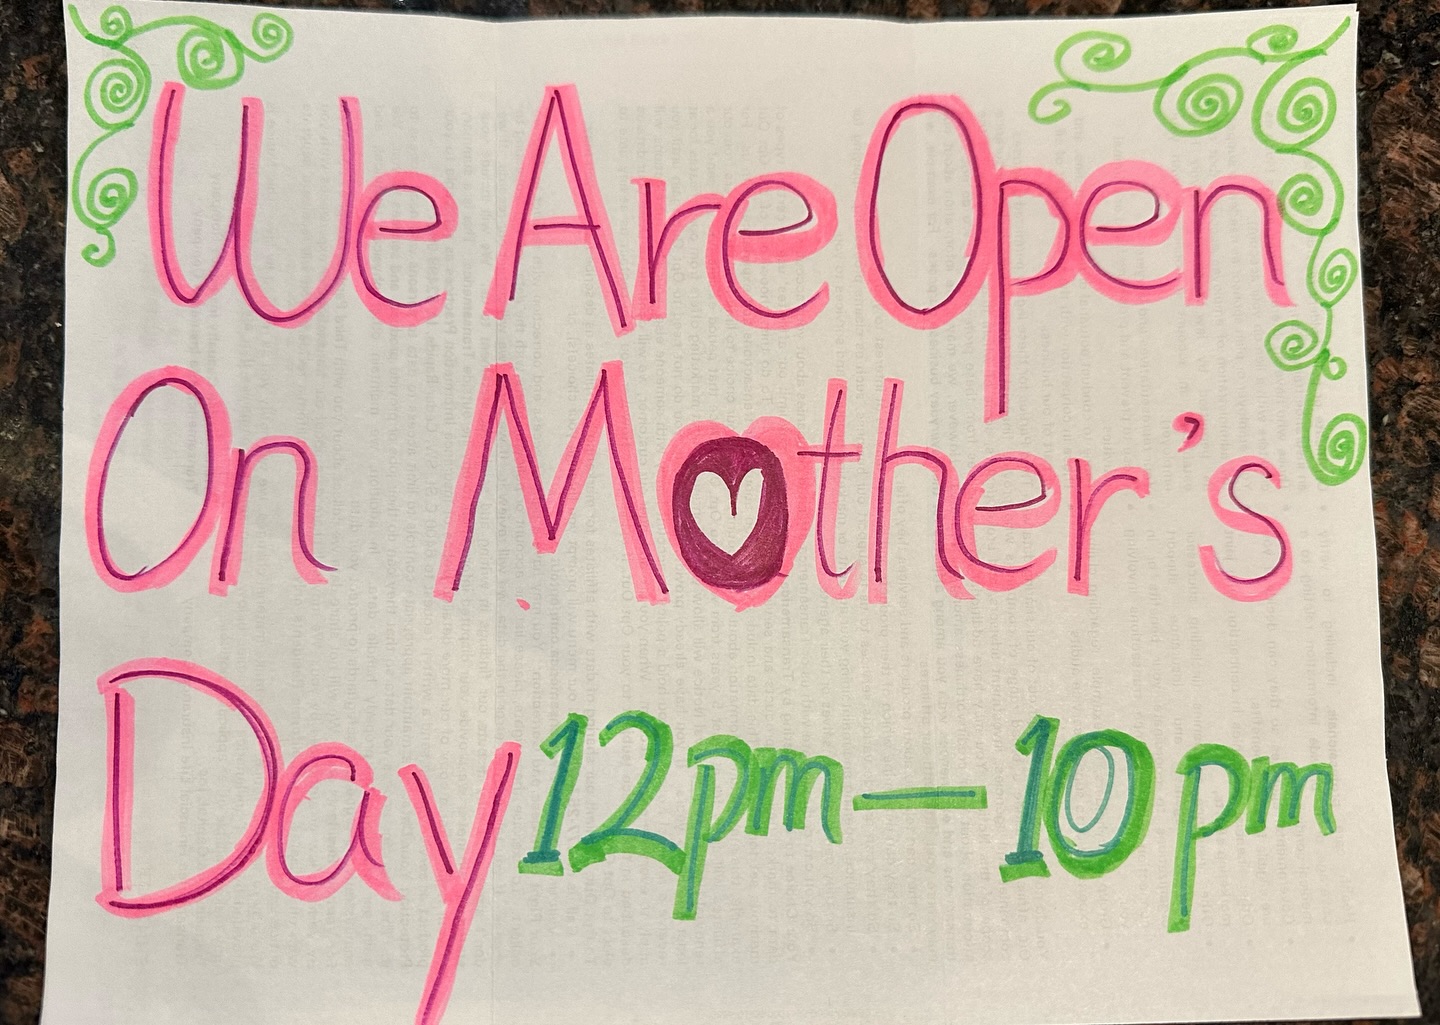 We Are Open
On Mother's
Day 12pm — 10pm